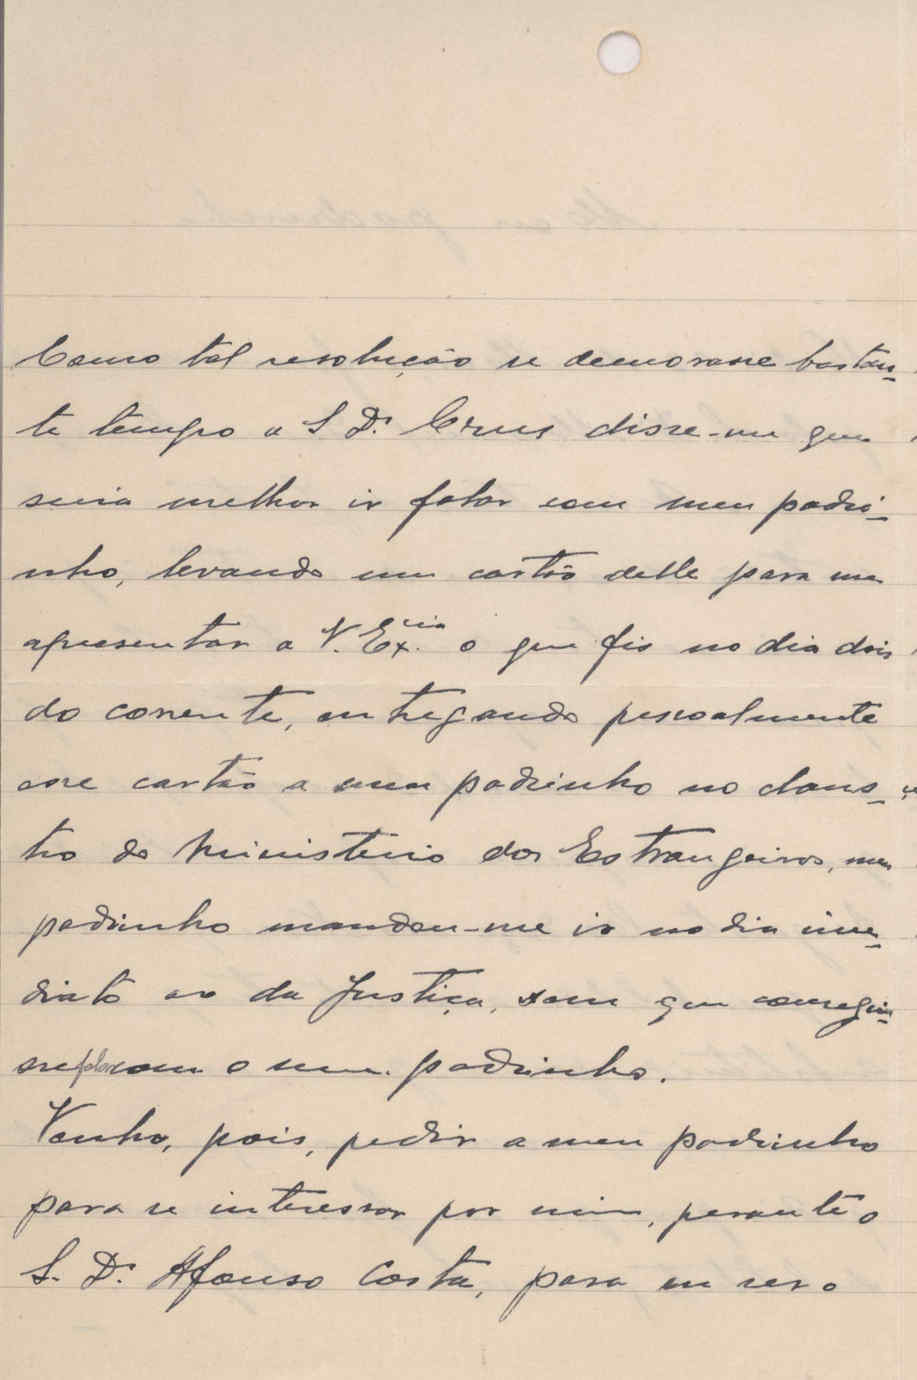 Como tal resolução se demorasse bastan-
te tempo o S Dr. Cruz disse-me que
seria melhor ir falar com meu padri-
nho, levando um cartão delle para me
apresentar a V. Ex.cia o que fis no dia dois
do corrente, entregando pessoalmente
esse cartão a meu padrinho no claus-
tro do Ministerio dos Estrangeiros, meu
padrinho mandou-me ir no dia ime-
diato ao da Justiça, sem que consegui-
se falar com o meu padrinho.
Venho, pois, pedir a meu padrinho
para se interessar por mim, perante o
S. Dr. Afonso Costa, para eu ser o